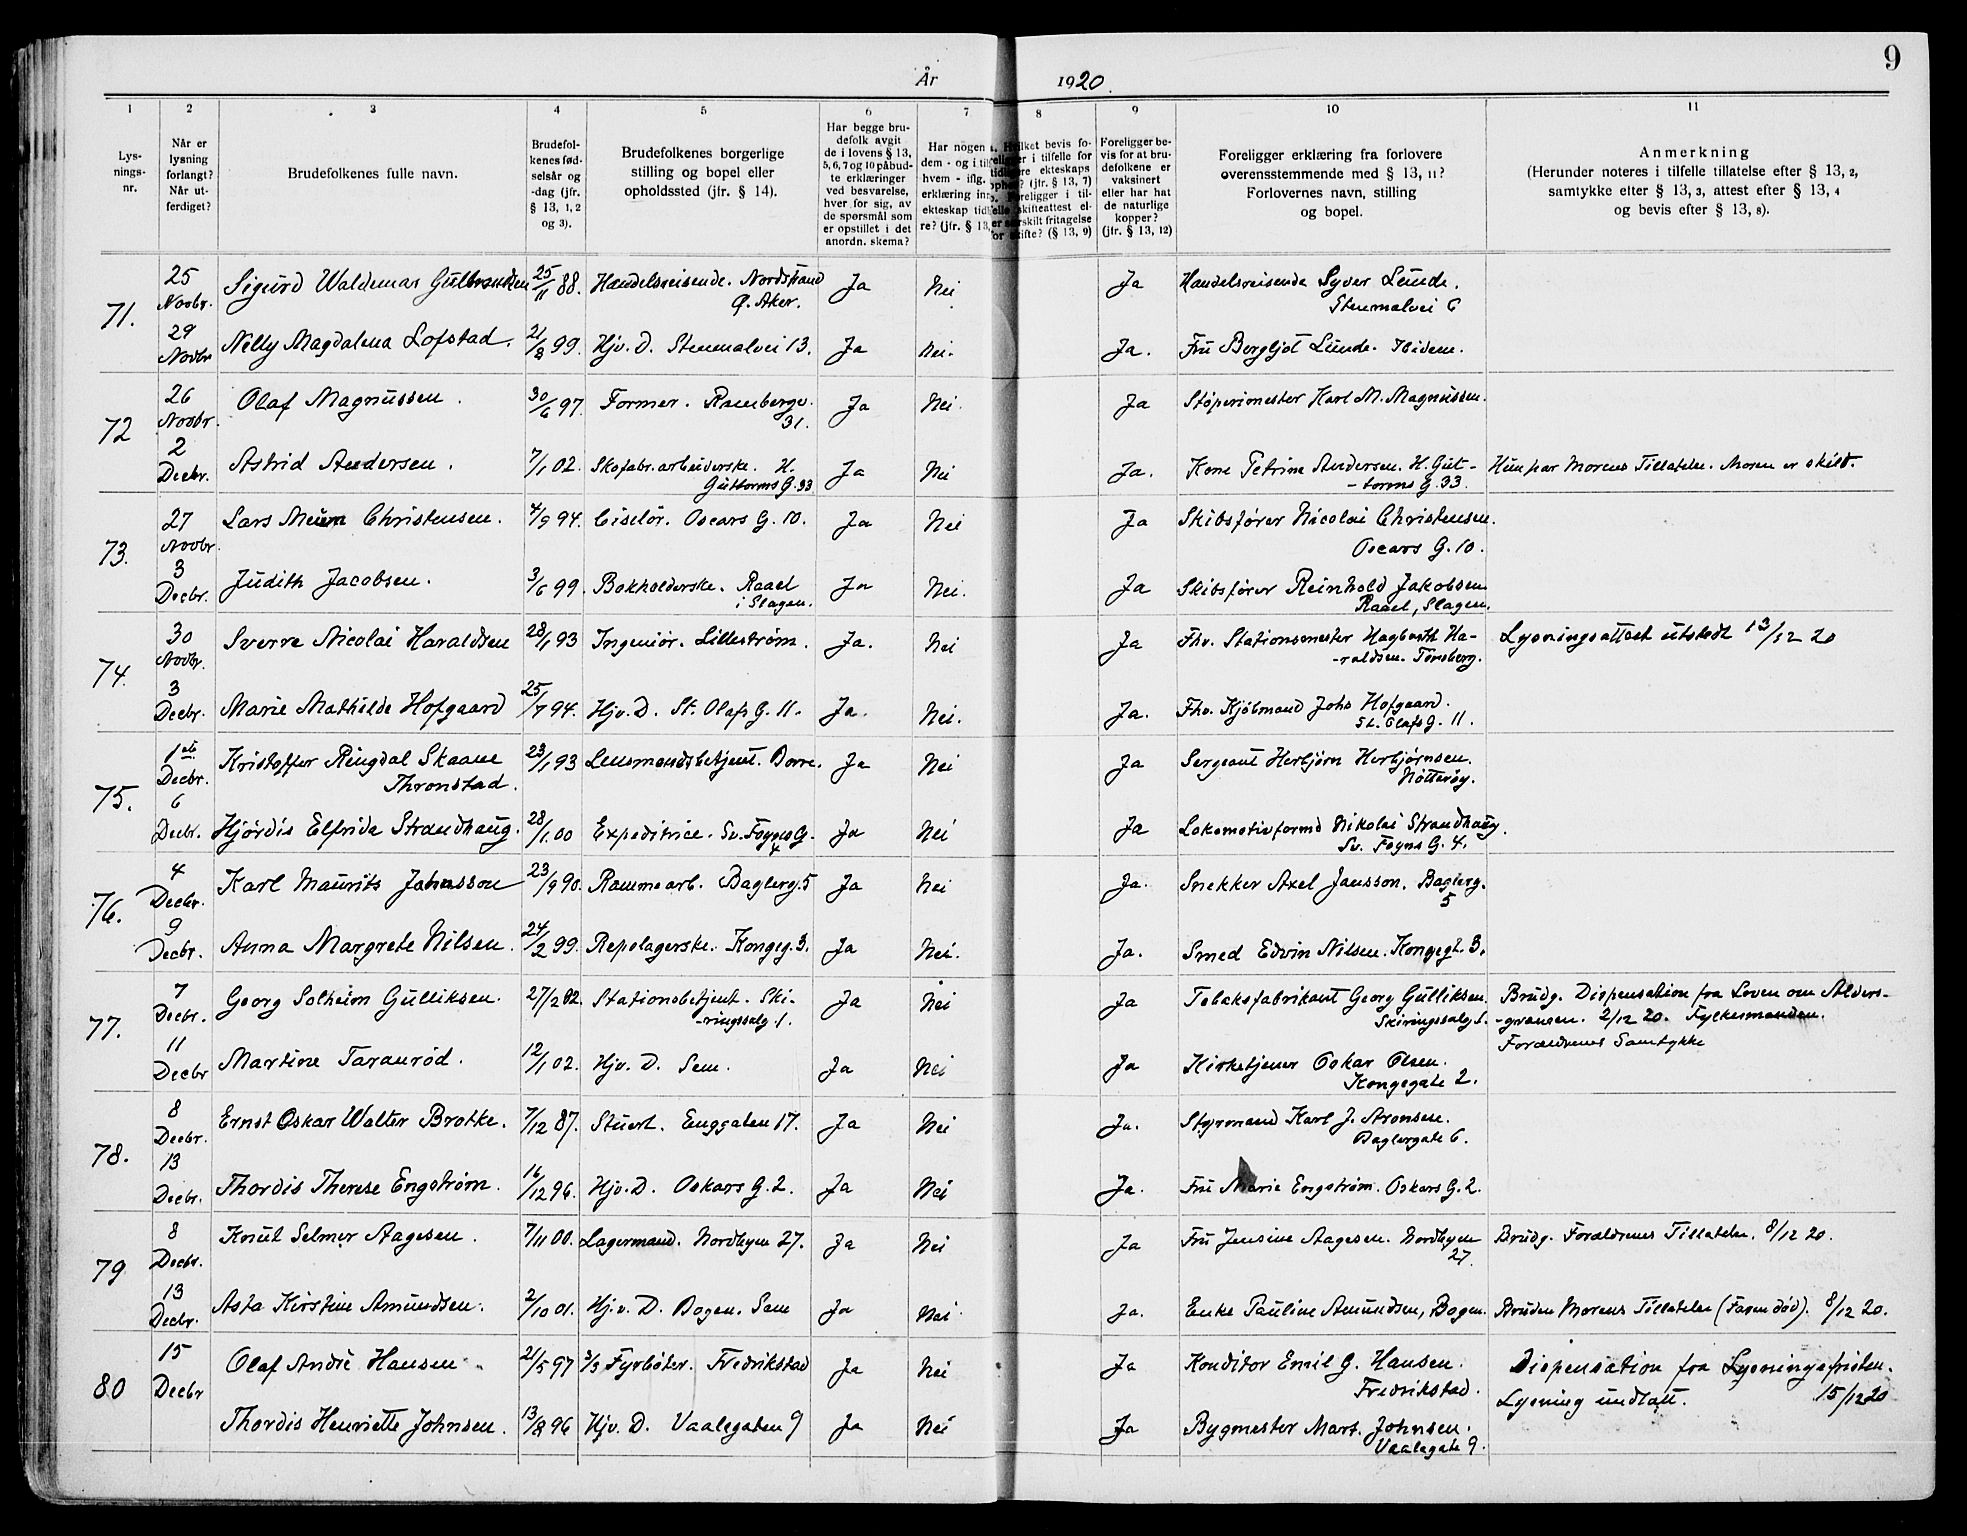 9
År 1920.
1 2 3 4 5 6 7 8 9 10 11
Lys-
nings-
nr.
Når er
lysning
forlangt?
Når ut-
ferdiget?
Brudefolkenes fulle navn.
Brudefol-
kenes fød-
selsår og
-dag (jfr.
§ 13, 1, 2
og 3).
Brudefolkenes borgerlige
stilling og bopel eller
opholdssted (jfr. § 14).
Har begge bru-
defolk avgit
de i lovens § 13,
5, 6, 7 og 10 påbud-
te erklæringer
ved besvarelse,
hver for sig, av
de spørsmål som
er opstillet i det
anordn. skema?
Har nogen
dem - og i
hvem - iflg.
erklæring
ekteskap
re? (jfr. § 13,
bevis fo-
i tilfelle for
ekteskaps
(jfr. § 13, 7)
Foreligger i til-
skifteattest el-
fritagelse
skifte? (§ 13, 9)
Foreligger be-
vis for at bru-
defolkene er
vaksinert
eller har hat
de naturlige
kopper?
(jfr. § 13, 12)
Foreligger erklæring fra forlovere
overensstemmende med § 13, 11?
Forlovernes navn, stilling
og bopel.
Anmerkning
(Herunder noteres i tilfelle tillatelse efter § 13, 2,
samtykke efter § 13, 3, attest efter § 13, 4
og bevis efter § 13, 8).
71.
25 Novbr. Sigurd Waldemar Gulbrandsen 25/11 88. Handelsreisende. Nordstrand Ja Nei Ja Handelsreisende Syver Lunde.
Ø. Aker. Stenmalvei 6
29 Novbr Nelly Magdalena Lofstad. 21/8 99. Hjv. D. Stenmalvei 13. Ja Nei. Ja. Fru Bergljot Lunde. Ibidem.
72
26 Novbr. Olaf Magnussen. 30/6 97. Former. Rambergv. Ja Nei. Ja Støperimester Karl M. Magnussen.
31.
2 Decbr. Astrid Andersen. 7/1 02. Skofabr. arbeiderske. H. Ja Nei Ja. Kone Petrine Andersen. H. Gut- Hun har Morens Tillatelse. Moren er skilt.
Guttorms G. 33 -torms G. 33.
73.
27 Novbr. Lars Meum Christensen. 4/9 94. Ciselör. Oscars G. 10. Ja Nei Ja Skibsfører Nicolai Christensen.
Oscars G. 10.
3 Decbr. Judith Jacobsen. 3/6 99. Bokholderske. Raael Ja Nei. Ja Skibsfører Reinhold Jakobsen
i Slagen. Raael, Slagen.
74.
30 Novbr. Sverre Nicolai Haraldsen 28/1 93 Ingeniør. Lillestrøm. Ja. Nei Ja Fhv. Stationsmester Hagbarth Ha- Lysningsattest utstedt 13/12 20
-raldsen. Tønsberg.
3 Decbr. Marie Mathilde Hofgaard 25/7 94. Hjv. D. St. Olafs G. 11. Ja. Nei. Ja. Fhv. Kjøbmand Johs Hofgaard.
St. Olafs G. 11.
75.
1ste Decbr. Kristoffer Ringdal Skaane 23/1 93 Lensmandsbetjent. Borre. Ja Nei Ja Sergeant Herbjørn Herbjørnsen.
Thronstad. Nötterøy.
6 Decbr. Hjördis Elfrida Strandhaug. 28/1 00 Expeditrice. Sv. Foyns G. Ja Nei Ja Lokomotivformd Nikolai Strandhaug.
4 Sv. Foyns G. 4.
76.
4 Decbr. Karl Maurits Johnsson 23/9 90. Rammearb. Baglerg. 5 Ja Nei Ja. Snekker Axel Jansson. Baglerg.
5
9 Decbr. Anna Margrete Nilsen. 24/2 99. Repslagerske. Kongeg. 3. Ja Nei. Ja. Smed Edvin Nilsen. Kongegt. 3.
77.
7 Decbr. Georg Solheim Gulliksen. 27/2 02. Stationsbetjent. Ski- Ja Nei Ja Tobaksfabrikant Georg Gulliksen. Brudg. Dispensation fra Loven om Alders-
-ringssalg 1. Skiringssalg 1. -grænsen. 2/12 20. Fylkesmanden.
Forældrenes Samtykke
11 Decbr Martine Taranrød. 12/1 02. Hjv. D. Sem. Ja Nei Ja Kirketjener Oskar Olsen.
Kongegate 2.
78.
8 Decbr. Ernst Oskar Walter Brotke. 7/12 87. Stuert. Enggaten 17. Ja Nei Ja. Styrmand Karl J. Aronsen.
Baglergate 6.
13 Decbr. Thordis Therese Engstrøm. 16/12 96. Hjv. D. Oskars G. 2. Ja Nei Ja. Fru Marie Engstrøm. Oskars G. 2.
79
8 Decbr. Knut Selmer Aagesen. 7/11 00. Lagermand. Nordbyen 27. Ja Nei Ja Fru Jensine Aagesen. Nordbyen Brudg. Forældrenes Tillatelse. 8/12 20.
27.
13 Decbr. Asta Kirstine Amundsen. 2/10 01. Hj.v. D. Bogen. Sem Ja Nei Ja. Enke Pauline Amundsen, Bogen. Bruden Morens Tillatelse (Faren död). 8/12 20.
80
15 Decbr Olaf André Hansen. 21/5 97 Fyrböter. Fredrikstad Ja Nei Ja Konditor Emil G. Hansen. Dispensation fra Lysningsfristen.
Fredrikstad. Lysning undlatt. 15/12 20
Thordis Henriette Johnsen. 13/8 96 Hjv. D. Vaalegaten 9 Ja Nei Ja Bygmester Mart. Johnsen.
Vaalegate 9.